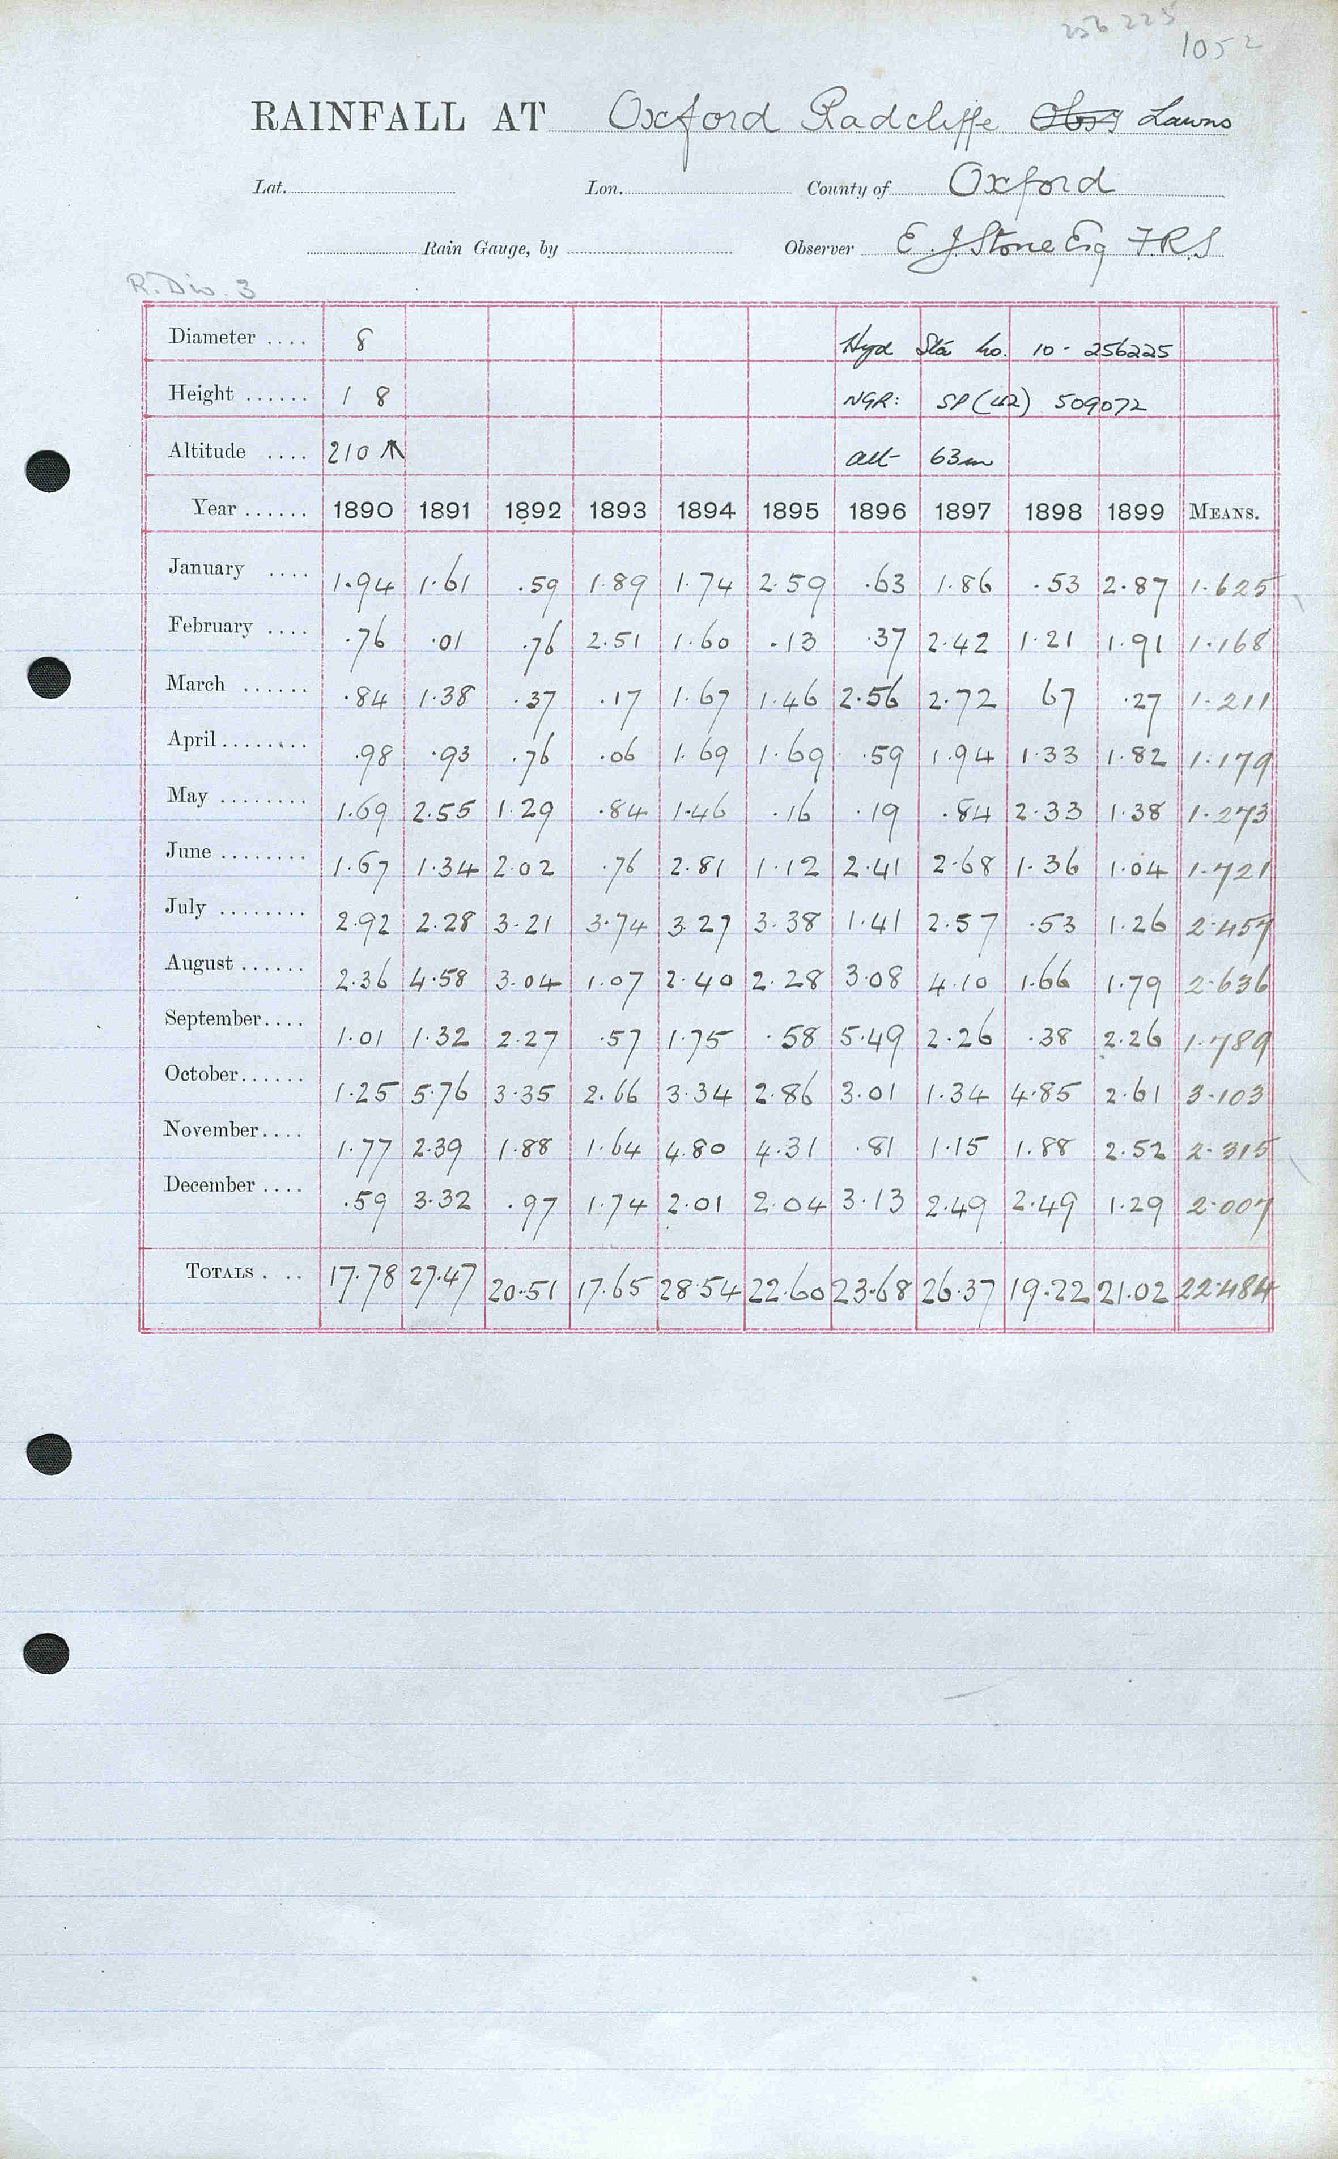 256225
1052
RAINFALL AT Oxford Radcliffe Obsy Lawns
Lat. Lon. County of Oxford
Rain Gauge, by Observer E. J Stone Esq F.R.S
R. Div. 3
Diameter .... 8 Hyd Sta No. 10 - 256225
Height ...... 1 8 NGR: SP (42) 509072
Altitude .... 210 ↑ alt 63m
Year ...... 1890 1891 1892 1893 1894 1895 1896 1897 1898 1899 MEANS.
January .... 1.94 1.61 .59 1.89 1.74 2.59 .63 1.86 .53 2.87 1.625
February .... .76 .01 .76 2.51 1.60 .13 .37 2.42 1.21 1.91 1.168
March ...... .84 1.38 .37 .17 1.67 1.46 2.56 2.72 67 .27 1.211
April ........ .98 .93 .76 .06 1.69 1.69 .59 1.94 1.33 1.82 1.179
May ........ 1.69 2.55 1.29 .84 1.46 .16 .19 .84 2.33 1.38 1.273
June ........ 1.67 1.34 2.02 .76 2.81 1.12 2.41 2.68 1.36 1.04 1.721
July ........ 2.92 2.28 3.21 3.74 3.27 3.38 1.41 2.57 .53 1.26 2.457
August ...... 2.36 4.58 3.04 1.07 2.40 2.28 3.08 4.10 1.66 1.79 2.636
September.... 1.01 1.32 2.27 .57 1.75 .58 5.49 2.26 .38 2.26 1.789
October...... 1.25 5.76 3.35 2.66 3.34 2.86 3.01 1.34 4.85 2.61 3.103
November.... 1.77 2.39 1.88 1.64 4.80 4.31 .81 1.15 1.88 2.52 2.315
December .... .59 3.32 .97 1.74 2.01 2.04 3.13 2.49 2.49 1.29 2.007
TOTALS . .. 17.78 27.47 20.51 17.65 28.54 22.60 23.68 26.37 19.22 21.02 22.484